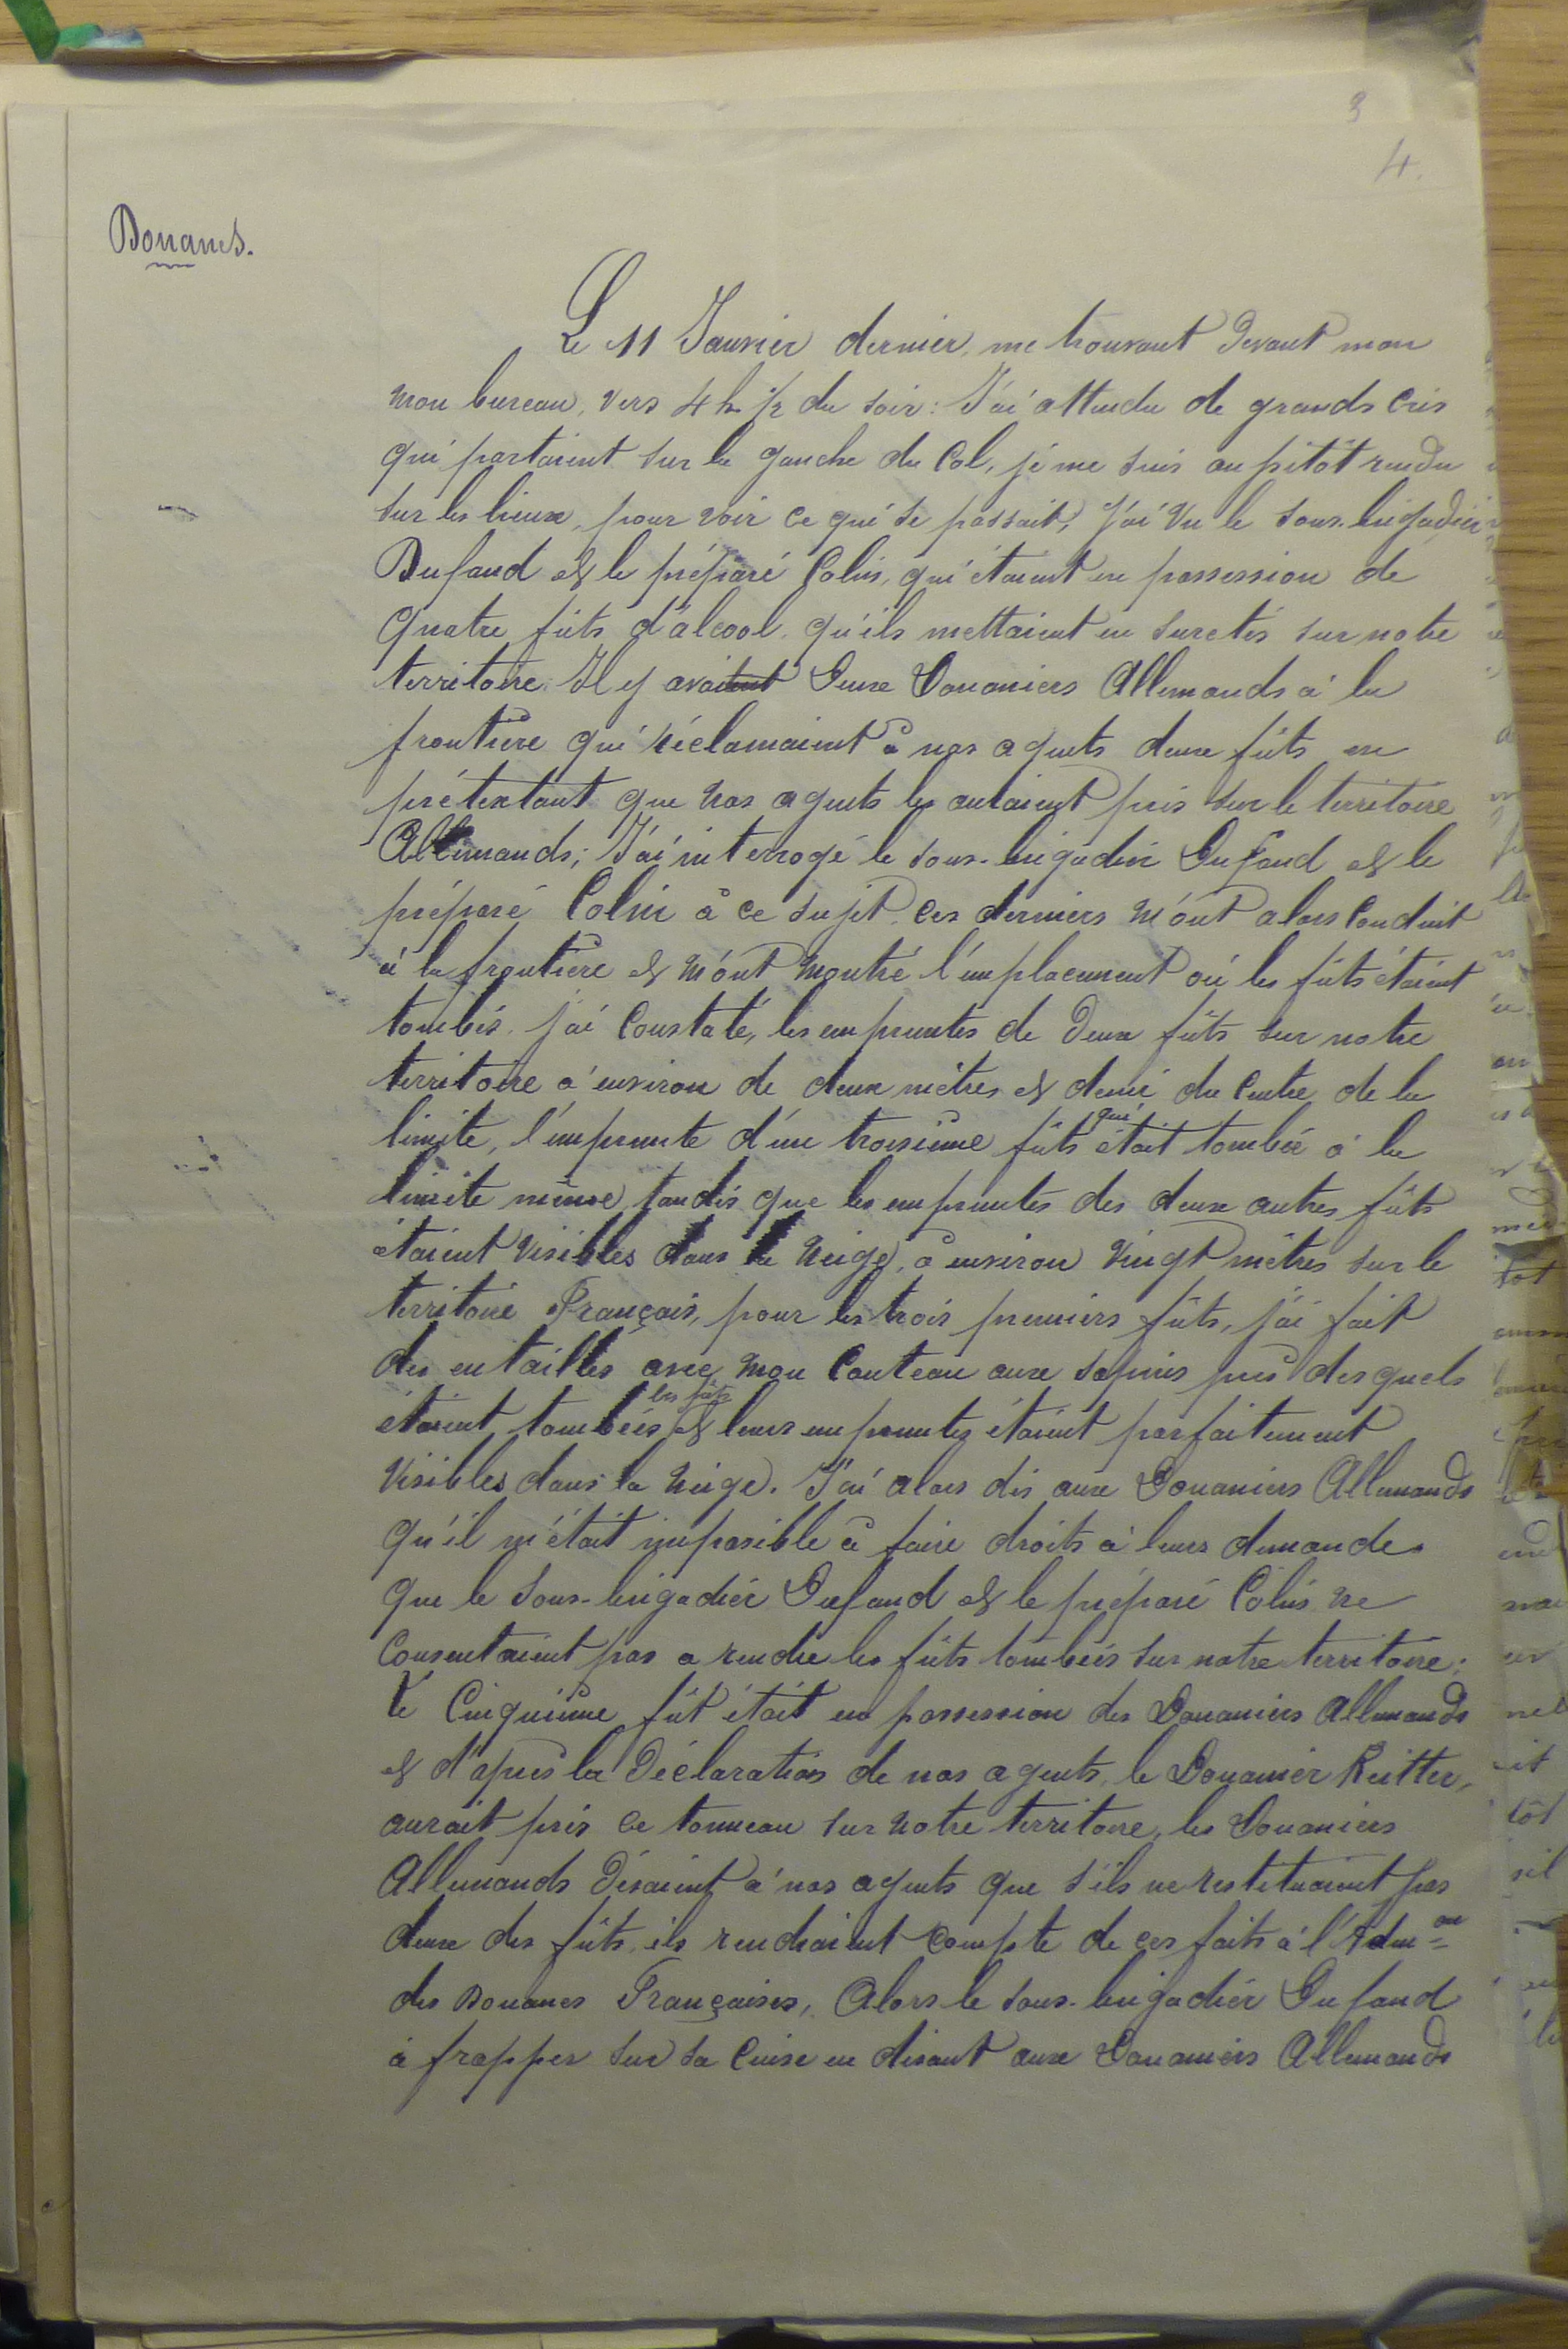 3
4.
Douanes.
Le 11 Janvier dernier, me trouvant devant mon
mon bureau, vers 4 h ½ du soir: J'ai attendu de grands cris
qui partaient sur la gauche du Col, je me suis aupitôt rendu
sur les lieux, pour voir ce qui se passait, j'ai vu le sous-brigadier
Dufaud & le préparé Colin, qui étaient en possession de
quatre fûts d'alcool qu'ils mettaient en suretés sur notre
territoire. Il y avaitent Deux Douaniers Allemands à la
frontière qui réclamaient à nos agents deux fûts en
prétextant que nos agents les auraient pris sur le territoire
Allemands; J'ai interrogé le sous-brigadier Dufaud & le
préparé Colin à ce sujet. Ces derniers m'ont alors conduit
à la frontière & m'ont montré l'emplacement où les fûts étaient
tombés. j'ai constaté, les empruntes de Deux fûts sur notre
territoire à environ de deux mètres & demi du centre de la
limite, l'emprunte d'un troisième fûts qui était tombée à la
limite même, tandis que les empruntes des deux autres fûts
étaient visibles dans la neige, à environ vingt mètres sur le
territoire Français, pour les trois premiers fûts, j'ai fait
des entailles avec mon couteau aux sapins près desquels
étaient tombées les fûts & leurs empruntes étaient parfaitement
visibles dans la neige. J'ai alors dis aux Douaniers Allemands
qu'il m'était imposible à faire droits à leurs demandes
que le sous-brigadier Dufaud & le préparé Colin ne
consentaient pas a rendre les fûts tombées sur notre territoire;
le cinquième fût était en possession des Douaniers Allemands
& d'après la Déclaration de nos agents, le Douanier Reitter,
aurait pris ce tonneau sur notre territoire, les Douaniers
Allemands disaient à nos agents que s'ils ne restituaient pas
deux des fûts, ils rendraient compte de ces faits à l'Adm.on
des Douanes Françaises, Alors le sous-brigadier Dufaud
à frapper sur sa cuise en disant aux Douaniers Allemands